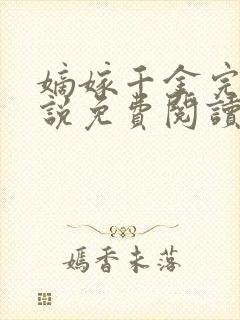 嫡嫁千金完
說免費閱讀
嫣香未落